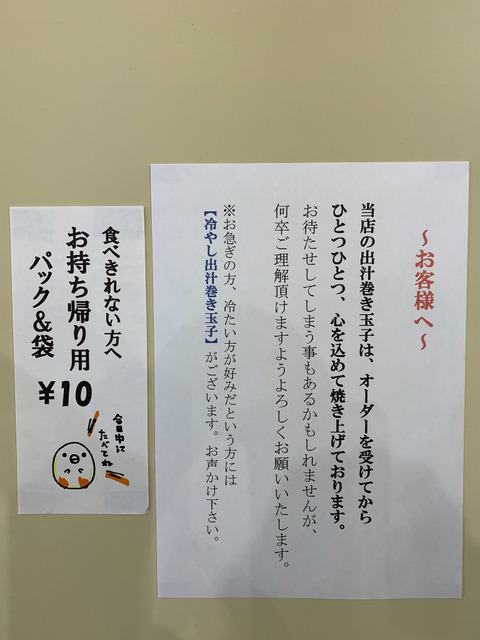 ～お客様へ～
当店の出汁巻き玉子は、オーダーを受けてから
ひとつひとつ、心を込めて焼き上げております。
お待たせしてしまう事もあるかもしれませんが、
何卒ご理解頂けますようよろしくお願いいたします。
※お急ぎの方、冷たい方が好みだという方には
【冷やし出汁巻き玉子】がございます。お声かけ下さい。
食べきれない方へ
お持ち帰り用
パック＆袋
¥10
今日中に
たべてね